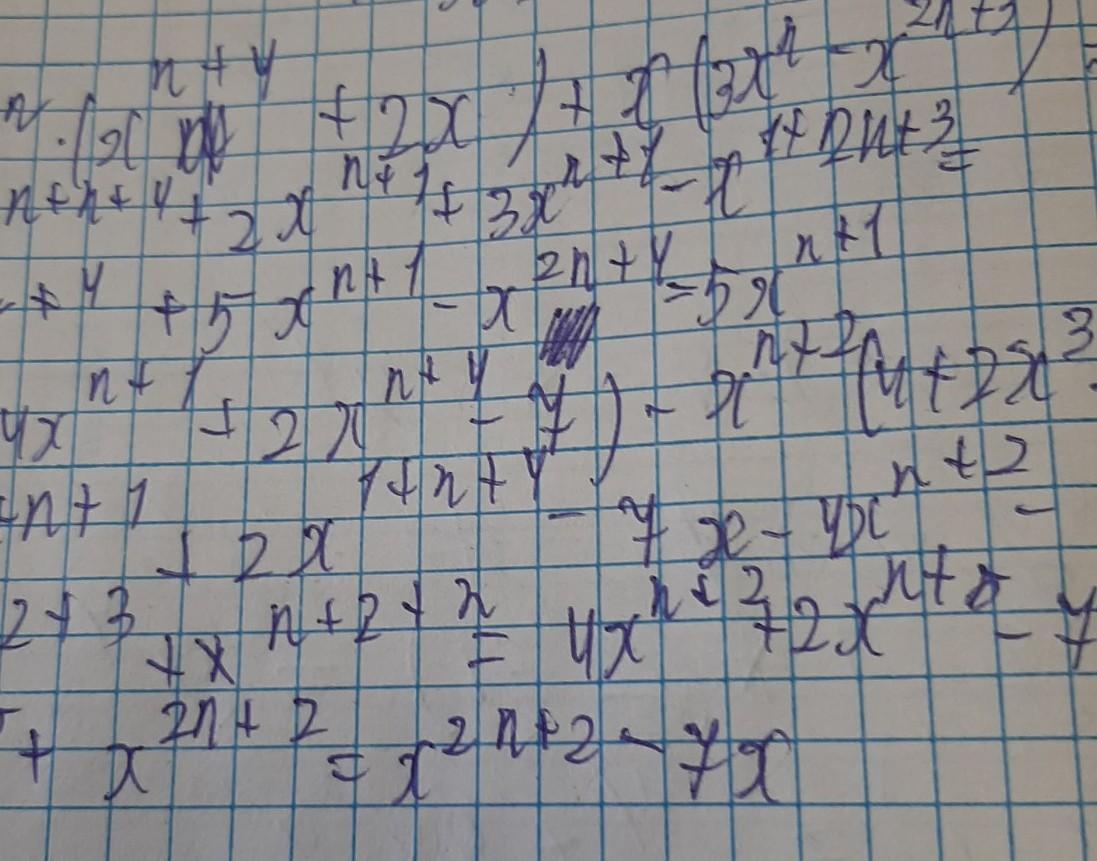 n·(x^{n+4} + 2x) + x(3x^n - x^{2n+3}) =
n+n+4 + 2x^{n+1} + 3x^{n+1} - x^{1+2n+3} =
+4 + 5x^{n+1} - x^{2n+4} = 5x^{n+1}
4x^{n+1} + 2x^{n+4} - 7) - x^{n+2}(4 + 2x^3 -
+n+1 + 2x^{1+n+4} - 7x - 4x^{n+2} -
2+3 + x^{n+2+n} = 4x^{n+2} + 2x^{n+5} - 7
+ x^{2n+2} = x^{2n+2} - 7x